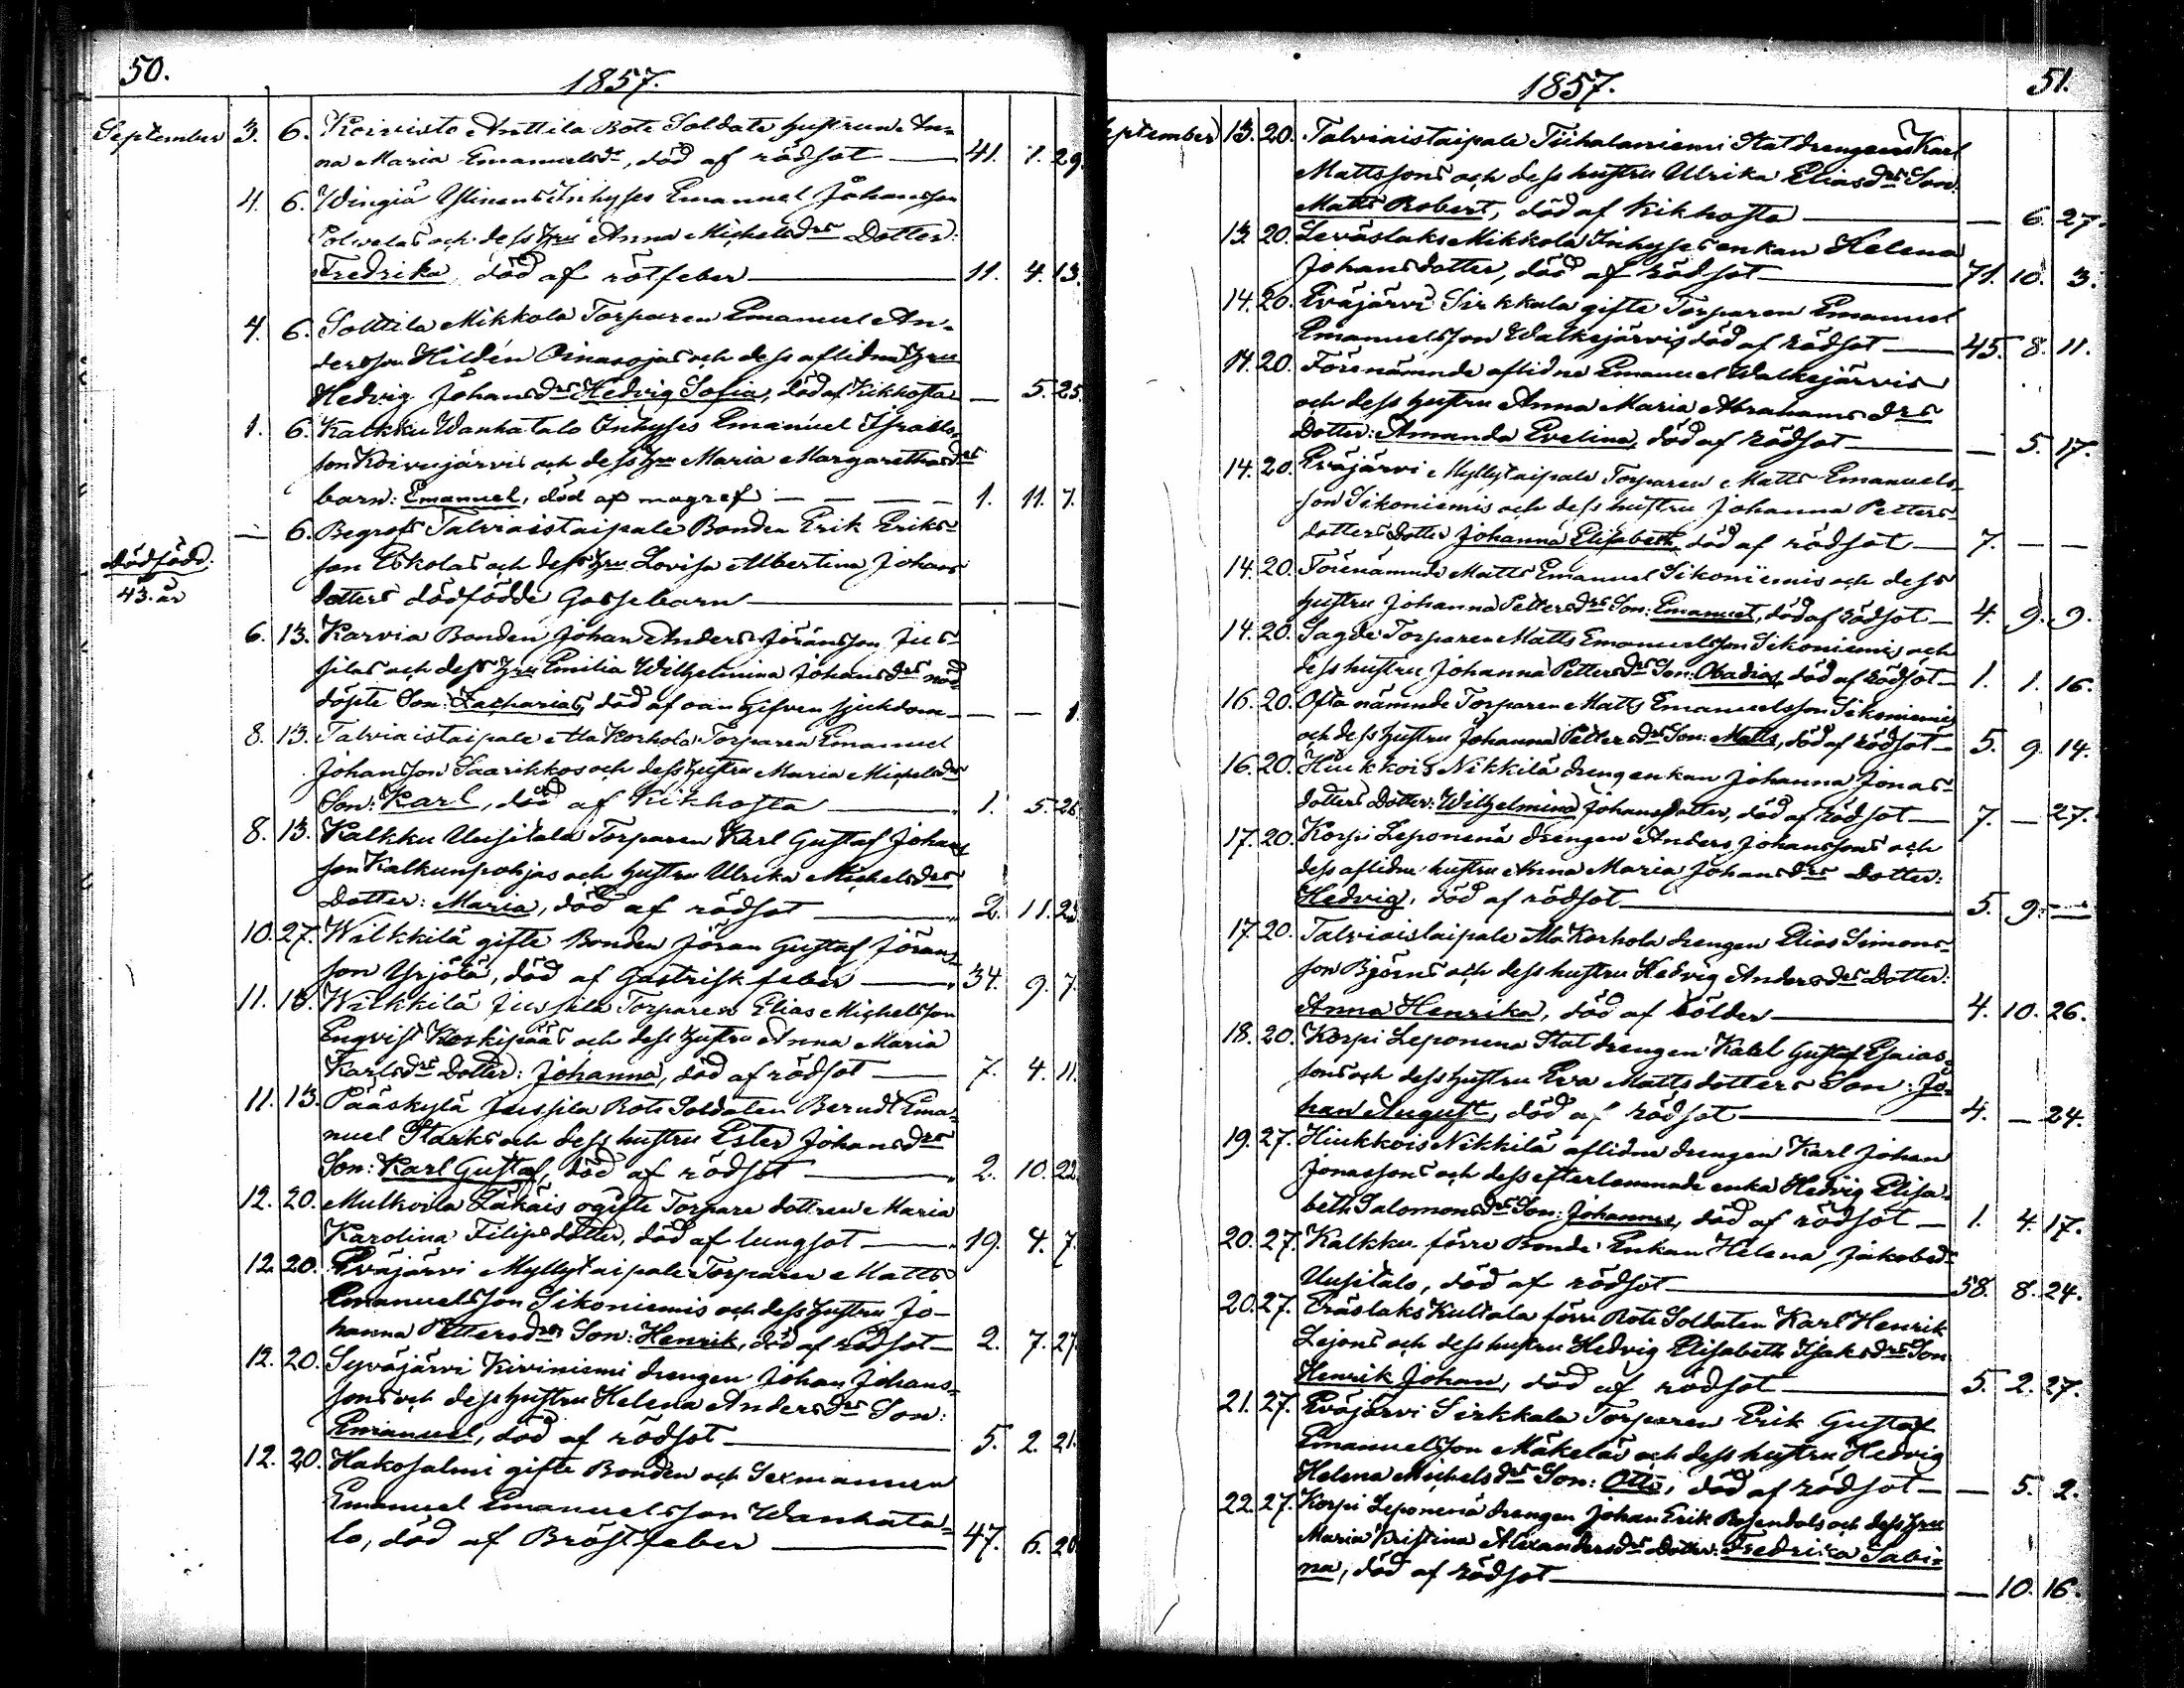 50.
1857.
September 3. 6. Koivisto Anttila Rote Soldats hustrun An-
na Maria Emanuelsdr, död af rödsot — 41. 7. 29.
4. 6. Wingiä Ylinens Inhyses Emanuel Johansson
och dess hru Anna Michelsdrs Dotter:
Fredrika död af rötfeber — 11. 4. 13.
4. 6. Solttila Mikkola Torparen Emanuel An-
dersson Hildén Oinasojas och dess aflidna hru
Hedvig Johansdrs Hedvig Sofia, död af Kikhosta — 5. 25.
1. 6. Kalkku Wanhatalo Inhyses Emanuel Israels-
son Koivujärvis och dess hru Maria Margarethasdrs
barn: Emanuel, död af magref — — — — 1. 11. 7.
— 6. Begrofs Talviaistaipale Bonden Erik Eriks-
son Eskolas och dess hru Lovisa Albertina Johans
dödfödd.
43. år
dotters dödfödde Gossebarn — — — —
6. 13. Karvia Bonden Johan Anders Jöransson Jus-
silas och dess hru Emilia Wilhelmina Johansdrs nöd-
döpte Son: Zacharias, död af oangifven sjukdom — — — 1.
8. 13. Talviaistaipale Ala Korhola Torparen Emanuel
Johansson Saarikkos och dess hustru Maria Michelsdrs
Son: Karl, död af Kikhosta — 1. 5. 26.
8. 13. Kalkku Uusitalo Torparen Karl Gustaf Johans
son Kalkunpohjas och hustru Ulrika Michelsdrs
Dotter: Maria, död af rödsot — 2. 11. 23.
10. 27. Wilkkilä gifte Bonden Jöran Gustaf Jörans-
son Yrjölä, död af Gastrisk feber — 34. 9. 7.
11. 13. Wilkkilä Jussila Torparen Elias Michelsson
Engvist Koskipääs och dess hustru Anna Maria
Karlsdrs Dotter: Johanna, död af rödsot — 7. 4. 11.
11. 13. Pääskylä Jussila Rote Soldaten Berndt Ema-
nuel Starks och dess hustru Ester Johansdrs
Son: Karl Gustaf, död af rödsot — 2. 10. 22.
12. 20. Mulkoila Läkäis ogifte Torpare dottren Maria
Karolina Filipsdotter, död af lungsot — 19. 4. 7.
12. 20. Eväjärvi Myllytaipale Torparen Matts
Emanuelsson Sikoniemis och dess hustru Jo-
hanna Pettersdrs Son: Henrik, död af rödsot — 2. 7. 27.
12. 20. Syväjärvi Kiviniemi drengen Johan Johans-
sons och dess hustru Helena Andersdrs Son:
Emanuel, död af rödsot — 5. 2. 21.
12. 20. Hakosalmi gifte Bonden och Sexmannen
Emanuel Emanuelsson Wanhata-
lo, död af Bröstfeber — 47. 6. 20.
1857.
51.
eptember 13. 20. Talviaistaipale Tiihalaniemi Statdrengen Karl
Mattssons och dess hustru Ulrika Eliasdrs Son:
Matts Robert, död af Kikhosta — — 6. 27.
13. 20. Leväslaks Mikkola Inhyses enkan Helena
Johansdotter, död af rödsot — 71. 10. 3.
14. 20. Eväjärvi Sirkkala gifte Torparen Emanuel
Emanuelsson Walkejärvi, död af rödsot — 45. 8. 11.
14. 20. Förenämnde aflidne Emanuel Walkejärvis
och dess hustru Anna Maria Abrahamsdrs
Dotter: Amanda Evelina, död af rödsot — — 5. 17.
14. 20. Eväjärvi Myllytaipale Torparen Matts Emanuels-
son Sikoniemis och dess hustru Johanna Petters-
dotters Dotter Johanna Elisabeth, död af rödsot — 7. — —
14. 20. Förenämnde Matts Emanuel Sikoniemis och dess
hustru Johanna Pettersdrs Son: Emanuel, död af rödsot — 4. 9. 9.
14. 20. Sagde Torparen Matts Emanuelsson Sikoniemis och
dess hustru Johanna Pettersdrs Son: Obadias, död af rödsot — 1. 1. 16.
16. 20. Ofta nämnde Torparen Matts Emanuelsson Sikoniemis
och dess hustru Johanna Pettersdrs Son: Matts, död af rödsot — 5. 9. 14.
16. 20. Hiukkois Nikkilä drengenkan Johanna Jonas-
dotters Dotter: Wilhelmina Johansdotter, död af rödsot — 7. — 27.
17. 20. Korpi Leponenä drengen Anders Johanssons och
dess aflidne hustru Anna Maria Johansdrs Dotter:
Hedvig, död af rödsot — 5. 9. —
17. 20. Talviaistaipale Ala Korhola drengen Elias Simons-
son Björns och dess hustru Hedvig Andersdrs Dotter:
Anna Henrika, död af bölder — 4. 10. 26.
18. 20. Korpi Leponena Statdrengen Karl Gustaf Esaias-
sons och dess hustru Eva Mattsdotters Son: Jo-
han August, död af rödsot — 4. — 24.
19. 27. Hiukkois Nikkilä aflidne drengen Karl Johan
Jonassons och dess efterlemnade enka Hedvig Elisa-
beth Salomonsdrs Son: Johannes, död af rödsot — 1. 4. 17.
20. 27. Kalkku förre Bonde Enkan Helena Jakobsdr
Uusitalo, död af rödsot — 58. 8. 24.
20. 27. Eräslaks Kultala förre Rote Soldaten Karl Henrik
Lejons och dess hustru Hedvig Elisabeth Isaksdrs Son
Henrik Johan, död af rödsot — 5. 2. 27.
21. 27. Eväjärvi Sirkkala Torparen Erik Gustaf
Emanuelsson Mäkeläs och dess hustru Hedvig
Helena Michelsdrs Son: Otto, död af rödsot — — 5. 2.
22. 27. Korpi Leponenä drengen Johan Erik Rosendals och dess hru
Maria Kristina Alexandersdrs Dotter: Fredrika Sabi-
na, död af rödsot — — 10. 16.